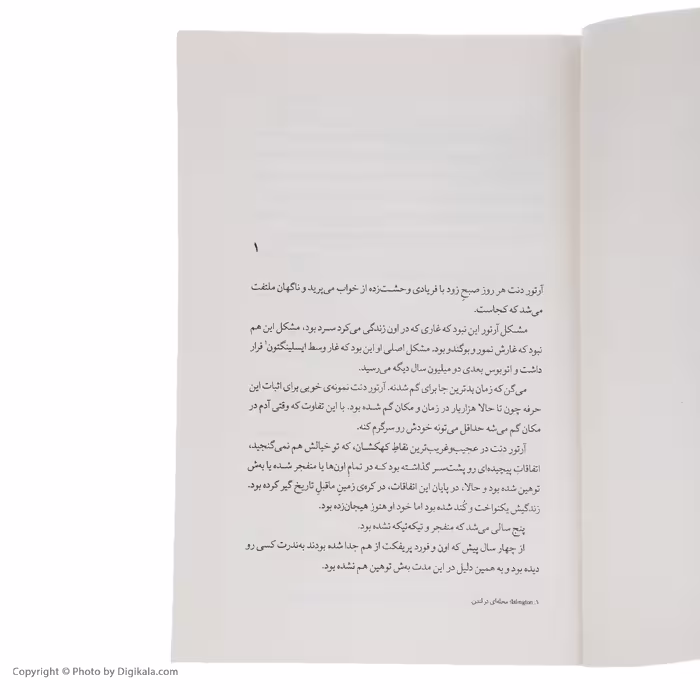 ۱
آرتور دنت هر روز صبح زود با فریادی وحشت‌زده از خواب می‌پرید و ناگهان ملتفت
می‌شد که کجاست.
مشکل آرتور این نبود که غاری که در اون زندگی می‌کرد سرد بود، مشکل این هم
نبود که غارش نمور و بوگندو بود. مشکل اصلی او این بود که غار وسط ایسلینگتون۱ قرار
داشت و اتوبوس بعدی دو میلیون سال دیگه می‌رسید.
می‌گن که زمان بدترین جا برای گم شدنه. آرتور دنت نمونه‌ی خوبی برای اثبات این
حرفه چون تا حالا هزاربار در زمان و مکان گم شده بود. با این تفاوت که وقتی آدم در
مکان گم می‌شه حداقل می‌تونه خودش رو سرگرم کنه.
آرتور دنت در عجیب‌وغریب‌ترین نقاط کهکشان، که تو خیالش هم نمی‌گنجید،
اتفاقات پیچیده‌ای رو پشت‌سر گذاشته بود که در تمام اون‌ها یا منفجر شده یا به‌ش
توهین شده بود و حالا، در پایان این اتفاقات، در کره‌ی زمینِ ماقبل تاریخ گیر کرده بود.
زندگیش یکنواخت و کُند شده بود اما خود او هنوز هیجان‌زده بود.
پنج سالی می‌شد که منفجر و تیکه‌تیکه نشده بود.
از چهار سال پیش که اون و فورد پریفکت از هم جدا شده بودند به‌ندرت کسی رو
دیده بود و به همین دلیل در این مدت به‌ش توهین هم نشده بود.
۱. Islington: محله‌ای در لندن.
Copyright © Photo by Digikala.com